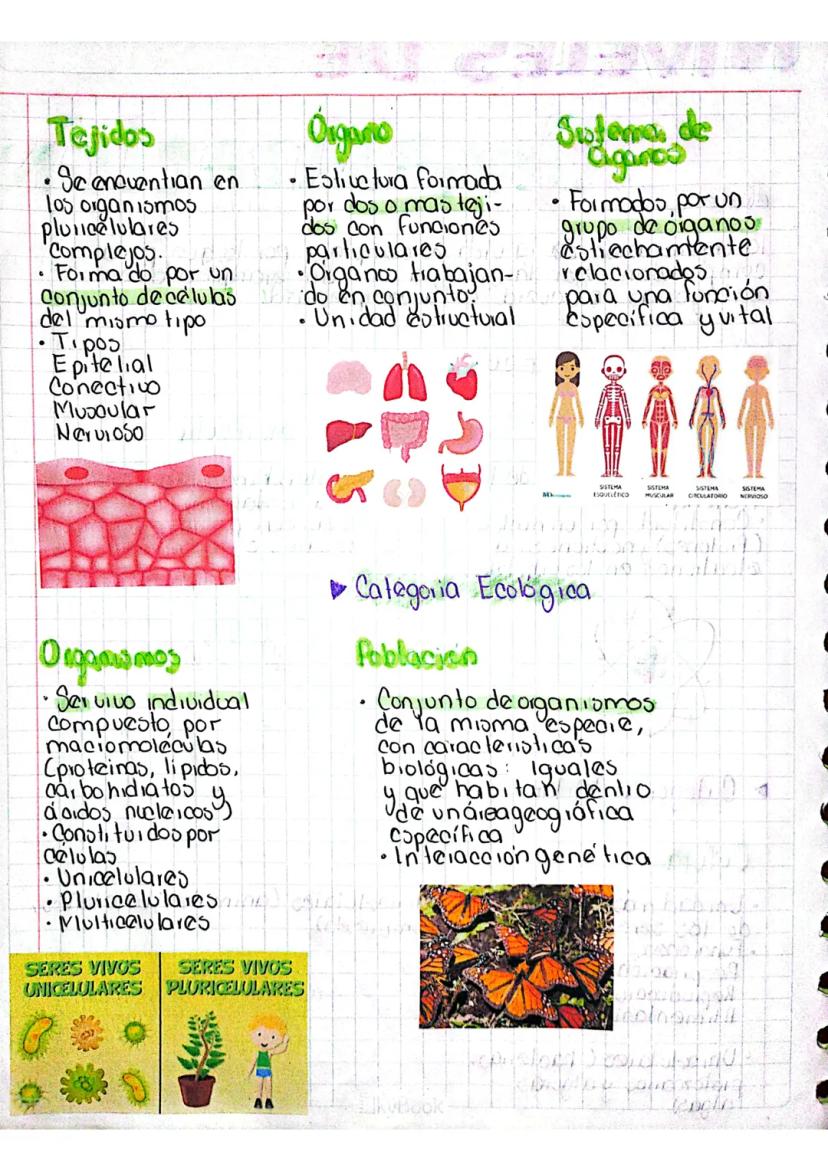 Tejidos
• Se encuentran en
los organismos
pluricelulares
complejos.
• Formado por un
conjunto de células
del mismo tipo
• Tipos
Epitelial
Conectivo
Muscular
Nervioso
Órgano
• Estructura formada
por dos o mas teji-
dos con funciones
particulares
• Organos trabajan-
do en conjunto.
• Unidad estructural
Sistema de
órganos
• Formados por un
grupo de órganos
estrechamente
relacionados
para una función
específica y vital
SISTEMA
ESQUELÉTICO
SISTEMA
MUSCULAR
SISTEMA
CIRCULATORIO
SISTEMA
NERVIOSO
▶ Categoria Ecológica
Organismos
• Ser vivo individual
compuesto por
macromoléculas
(proteínas, lípidos,
carbohidratos y
ácidos nucleicos)
• Constituidos por
células
• Unicelulares
• Pluricelulares
• Multicelulares
SERES VIVOS
UNICELULARES
SERES VIVOS
PLURICELULARES
Población
• Conjunto de organismos
de la misma especie,
con características
biológicas: Iguales
y que habitan dentro
de un área geográfica
específica
• Interacción genética